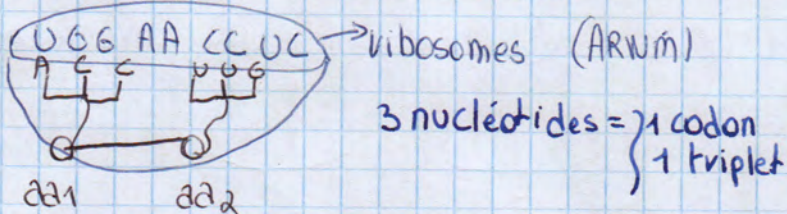 UGG AA CC UC → ribosomes (ARNm)
A C C U U G
3 nucléotides = } 1 codon
1 triplet
aa1 aa2